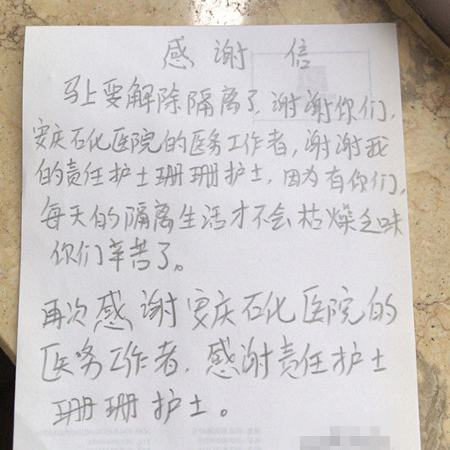 感谢信
马上要解除隔离了，谢谢你们，
安庆石化医院的医务工作者，谢谢我
的责任护士珊珊护士，因为有你们，
每天的隔离生活才不会枯燥乏味
你们辛苦了。
再次感谢安庆石化医院的
医务工作者，感谢责任护士
珊珊护士。